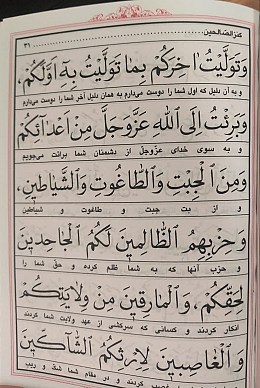 کنزالصالحین ۳۱
وَتَوَلَّیْتُ اٰخِرَکُمْ بِمٰا تَوَلَّیْتُ بِهِ اَوَّلَکُمْ،
و به آن دلیل که اول شما را دوست می‌دارم به همان دلیل آخر شما را دوست می‌دارم
وَبَرِئْتُ اِلَی اللهِ عَزَّوَجَلَّ مِنْ اَعْدٰائِکُمْ
و به سوی خدای عزوجل از دشمنان شما برائت می‌جویم
وَمِنَ الْجِبْتِ وَالطّٰاغُوتِ وَالشَّیٰاطینِ،
و از بت جبت و طاغوت و شیاطین
وَحِزْبِهِمُ الظّٰالِمینَ لَکُمُ الْجٰاحِدینَ
و حزب آنها که به شما ظلم کرده و حق شما را
لِحَقِّکُمْ، وَالْمٰارِقینَ مِنْ وِلٰایَتِکُمْ
انکار کردند و کسانی که سرکشی از عهد ولایت شما کردند
وَالْغٰاصِبینَ لِاِرْثِکُمُ الشّٰاکّینَ
کردند و در مقام شما شک و ریب